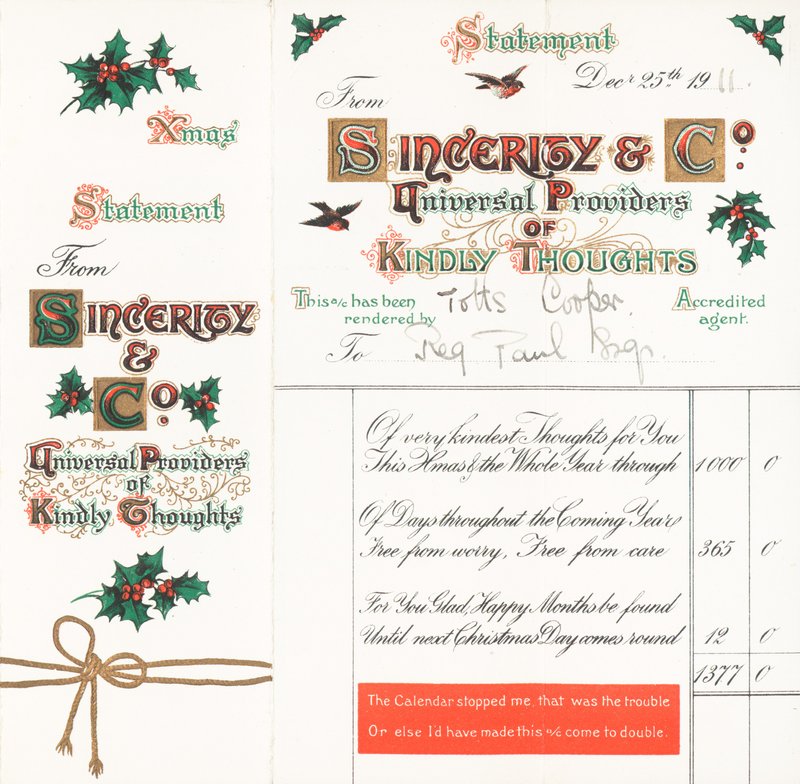 Xmas
Statement
From
Sincerity
&
Co.
Universal Providers
of
Kindly Thoughts
Statement
Decr 25th 1911.
From
Sincerity & Co.
Universal Providers
of
Kindly Thoughts
This a/c has been rendered by Totts Cooper. Accredited agent.
To Reg Paul Esqr.
Of very kindest Thoughts for You
This Xmas & the Whole Year through 1000 0
Of Days throughout the Coming Year
Free from worry, Free from care 365 0
For You Glad, Happy Months be found
Until next Christmas Day comes round 12 0
1377 0
The Calendar stopped me, that was the trouble
Or else I'd have made this a/c come to double.